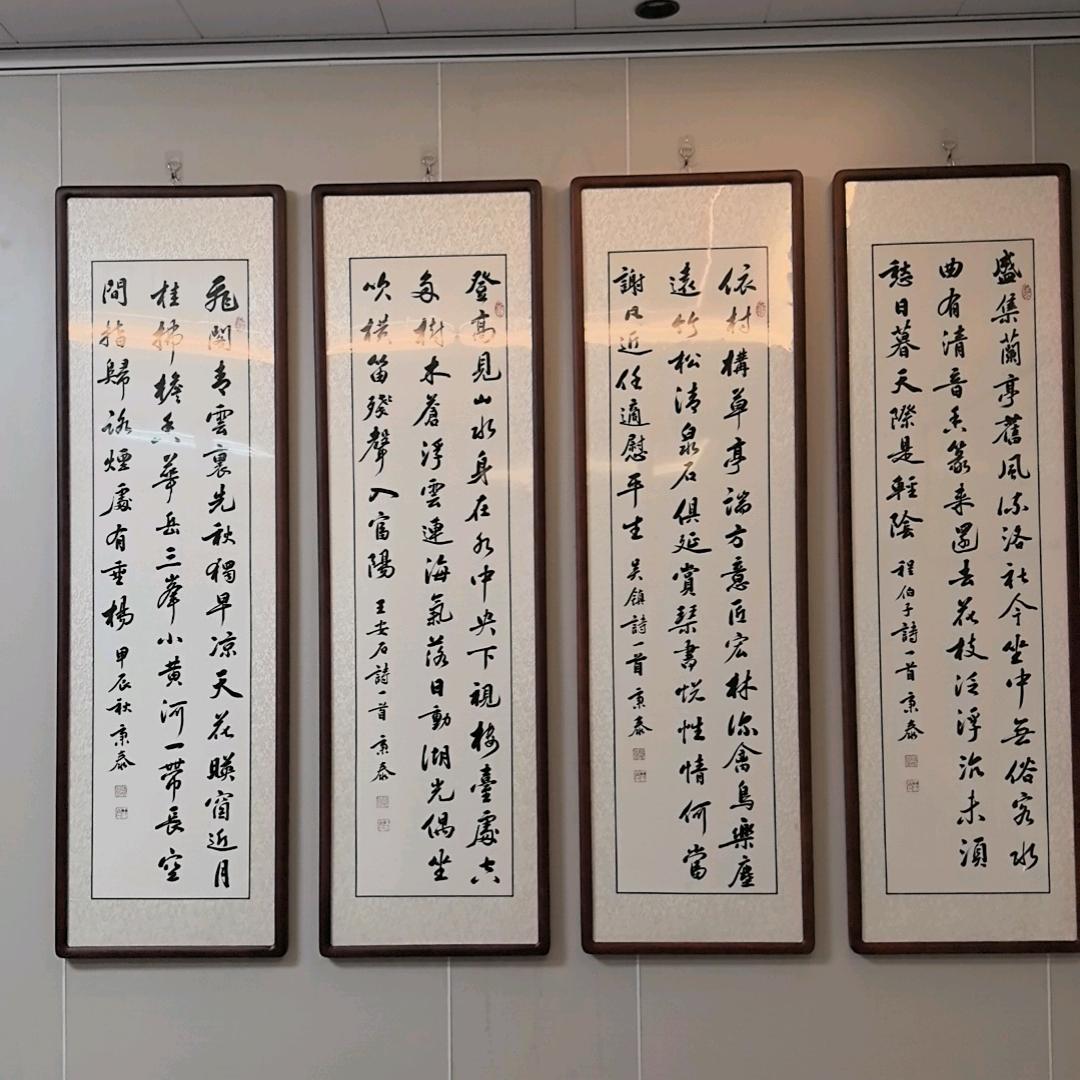 盛集蘭亭舊風流洛社今坐中無俗客水
曲有清音香篆來還去花枝泛浮沉未須
愁日暮天際是輕陰 程伯子詩一首 秉泰
依村構草亭端方意匠宏林深禽鳥樂塵
遠竹松清泉石俱延賞琴書悅性情何當
謝凡近任適慰平生 吳鎮詩一首 秉泰
登高見山水身在水中央下視樓臺處空
多樹木蒼浮雲連海氣落日動湖光偶坐
吹橫笛殘聲入富陽 王安石詩一首 秉泰
飛閣青雲裏先秋獨早凉天花暎窗近月
桂拂檐香華岳三峯小黃河一帶長空
間指歸路煙處有垂楊 甲辰秋秉泰